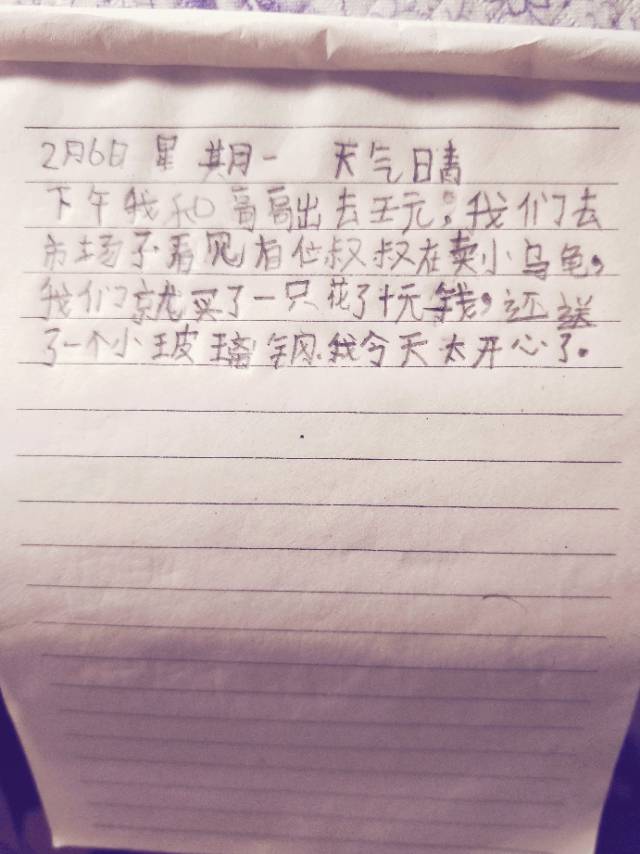 2月6日 星期一 天气晴
下午我和高高出去王元;我们去
市场了.看见有位叔叔在卖小乌龟,
我们就买了一只花了十元钱,还送
了一个小玻璃钢.我今天太开心了.